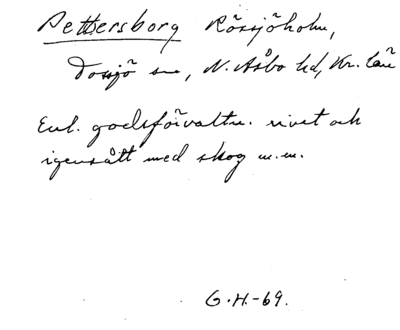 Pettersborg Rössjöholm,
Tossjö sn, N. Åsbo hd, Kr. län
Enl. godsförvaltn. rivet och
igensått med skog m.m.
G.H.-69.